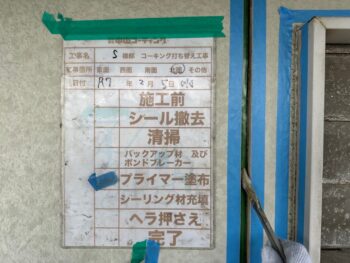 工事名 S様邸 コーキング打ち替え工事
工事個所 東面 西面 南面 北面 その他
日付 R7 年 3月 5日
施工前
シール撤去
清掃
バックアップ材 及び
ボンドブレーカー
プライマー塗布
シーリング材充填
ヘラ押さえ
完了